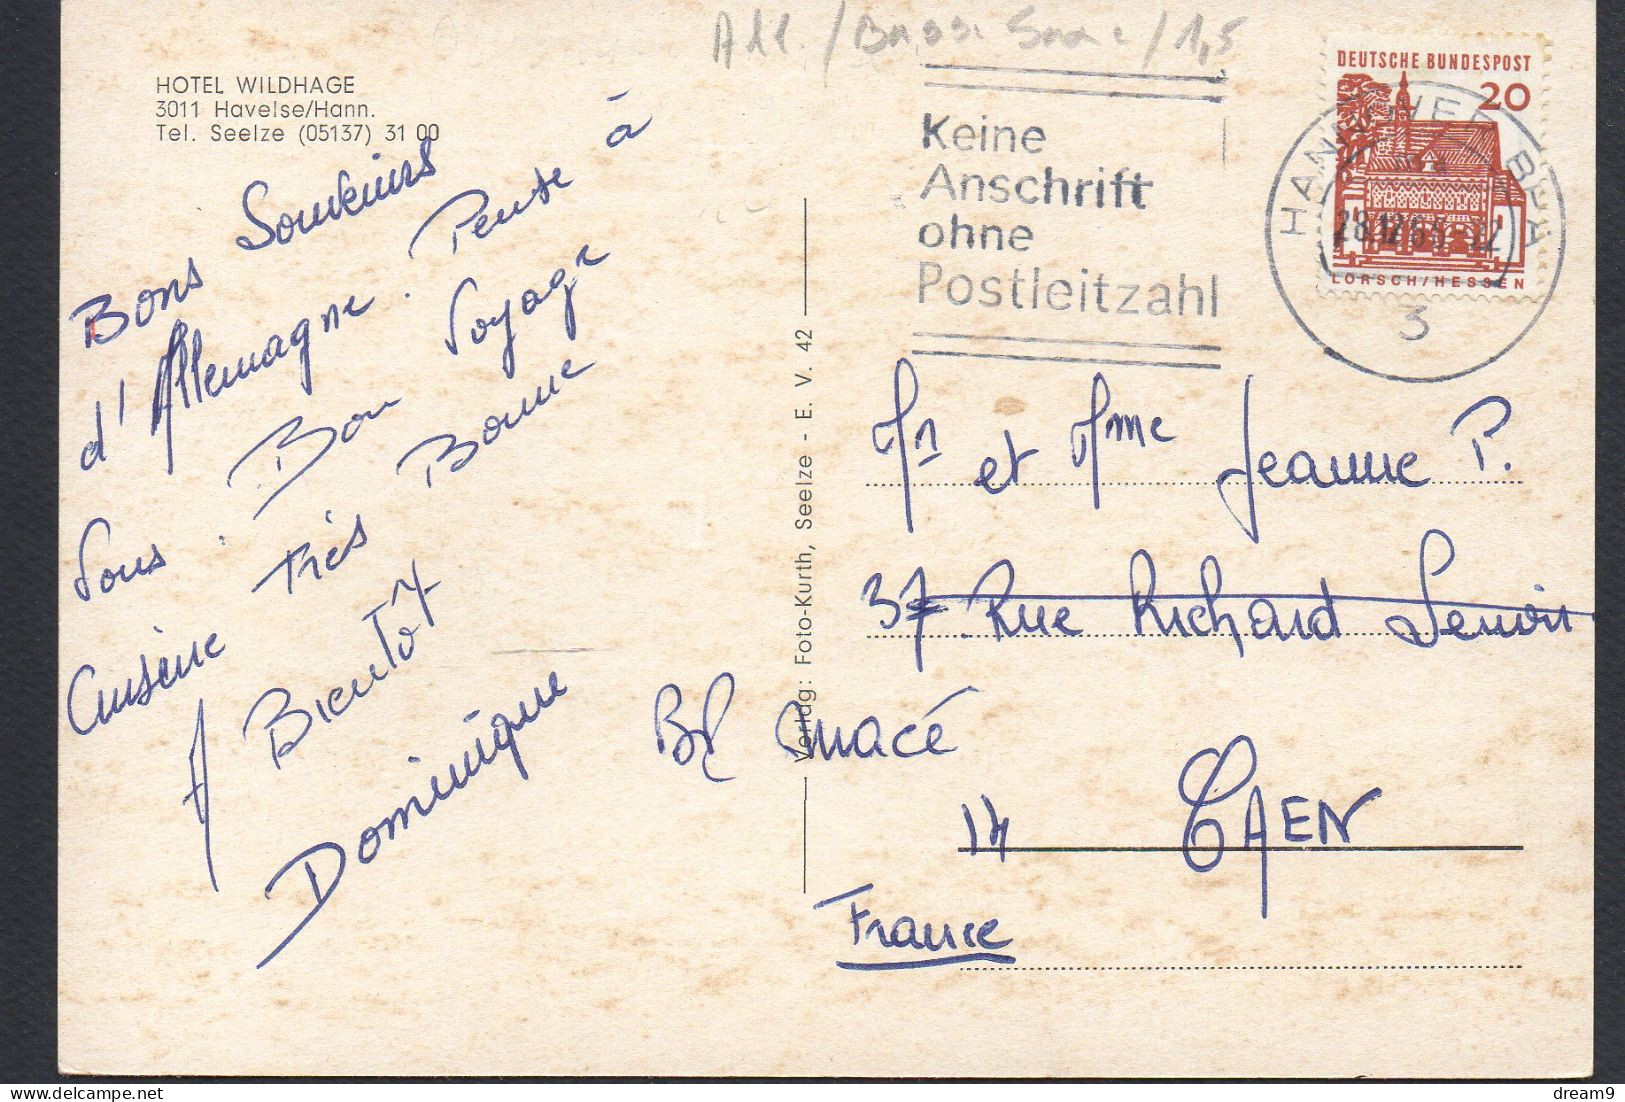 All. / Basse Saxe / 1,5
HOTEL WILDHAGE
3011 Havelse/Hann.
Tel. Seelze (05137) 31 00
Bons Souvenirs
d'Allemagne. Pense à
Vous. Bon Voyage
Cuisine Très Bonne
A Bientôt
Dominique
Verlag: Foto-Kurth, Seelze - E. V. 42
Keine
Anschrift
ohne
Postleitzahl
DEUTSCHE BUNDESPOST
20
LORSCH/HESSEN
HANNOVER BPA
3
Mr et Mme Jeanne P.
37 Rue Richard Lenoir
Bd Macé
14 CAEN
France
dream9